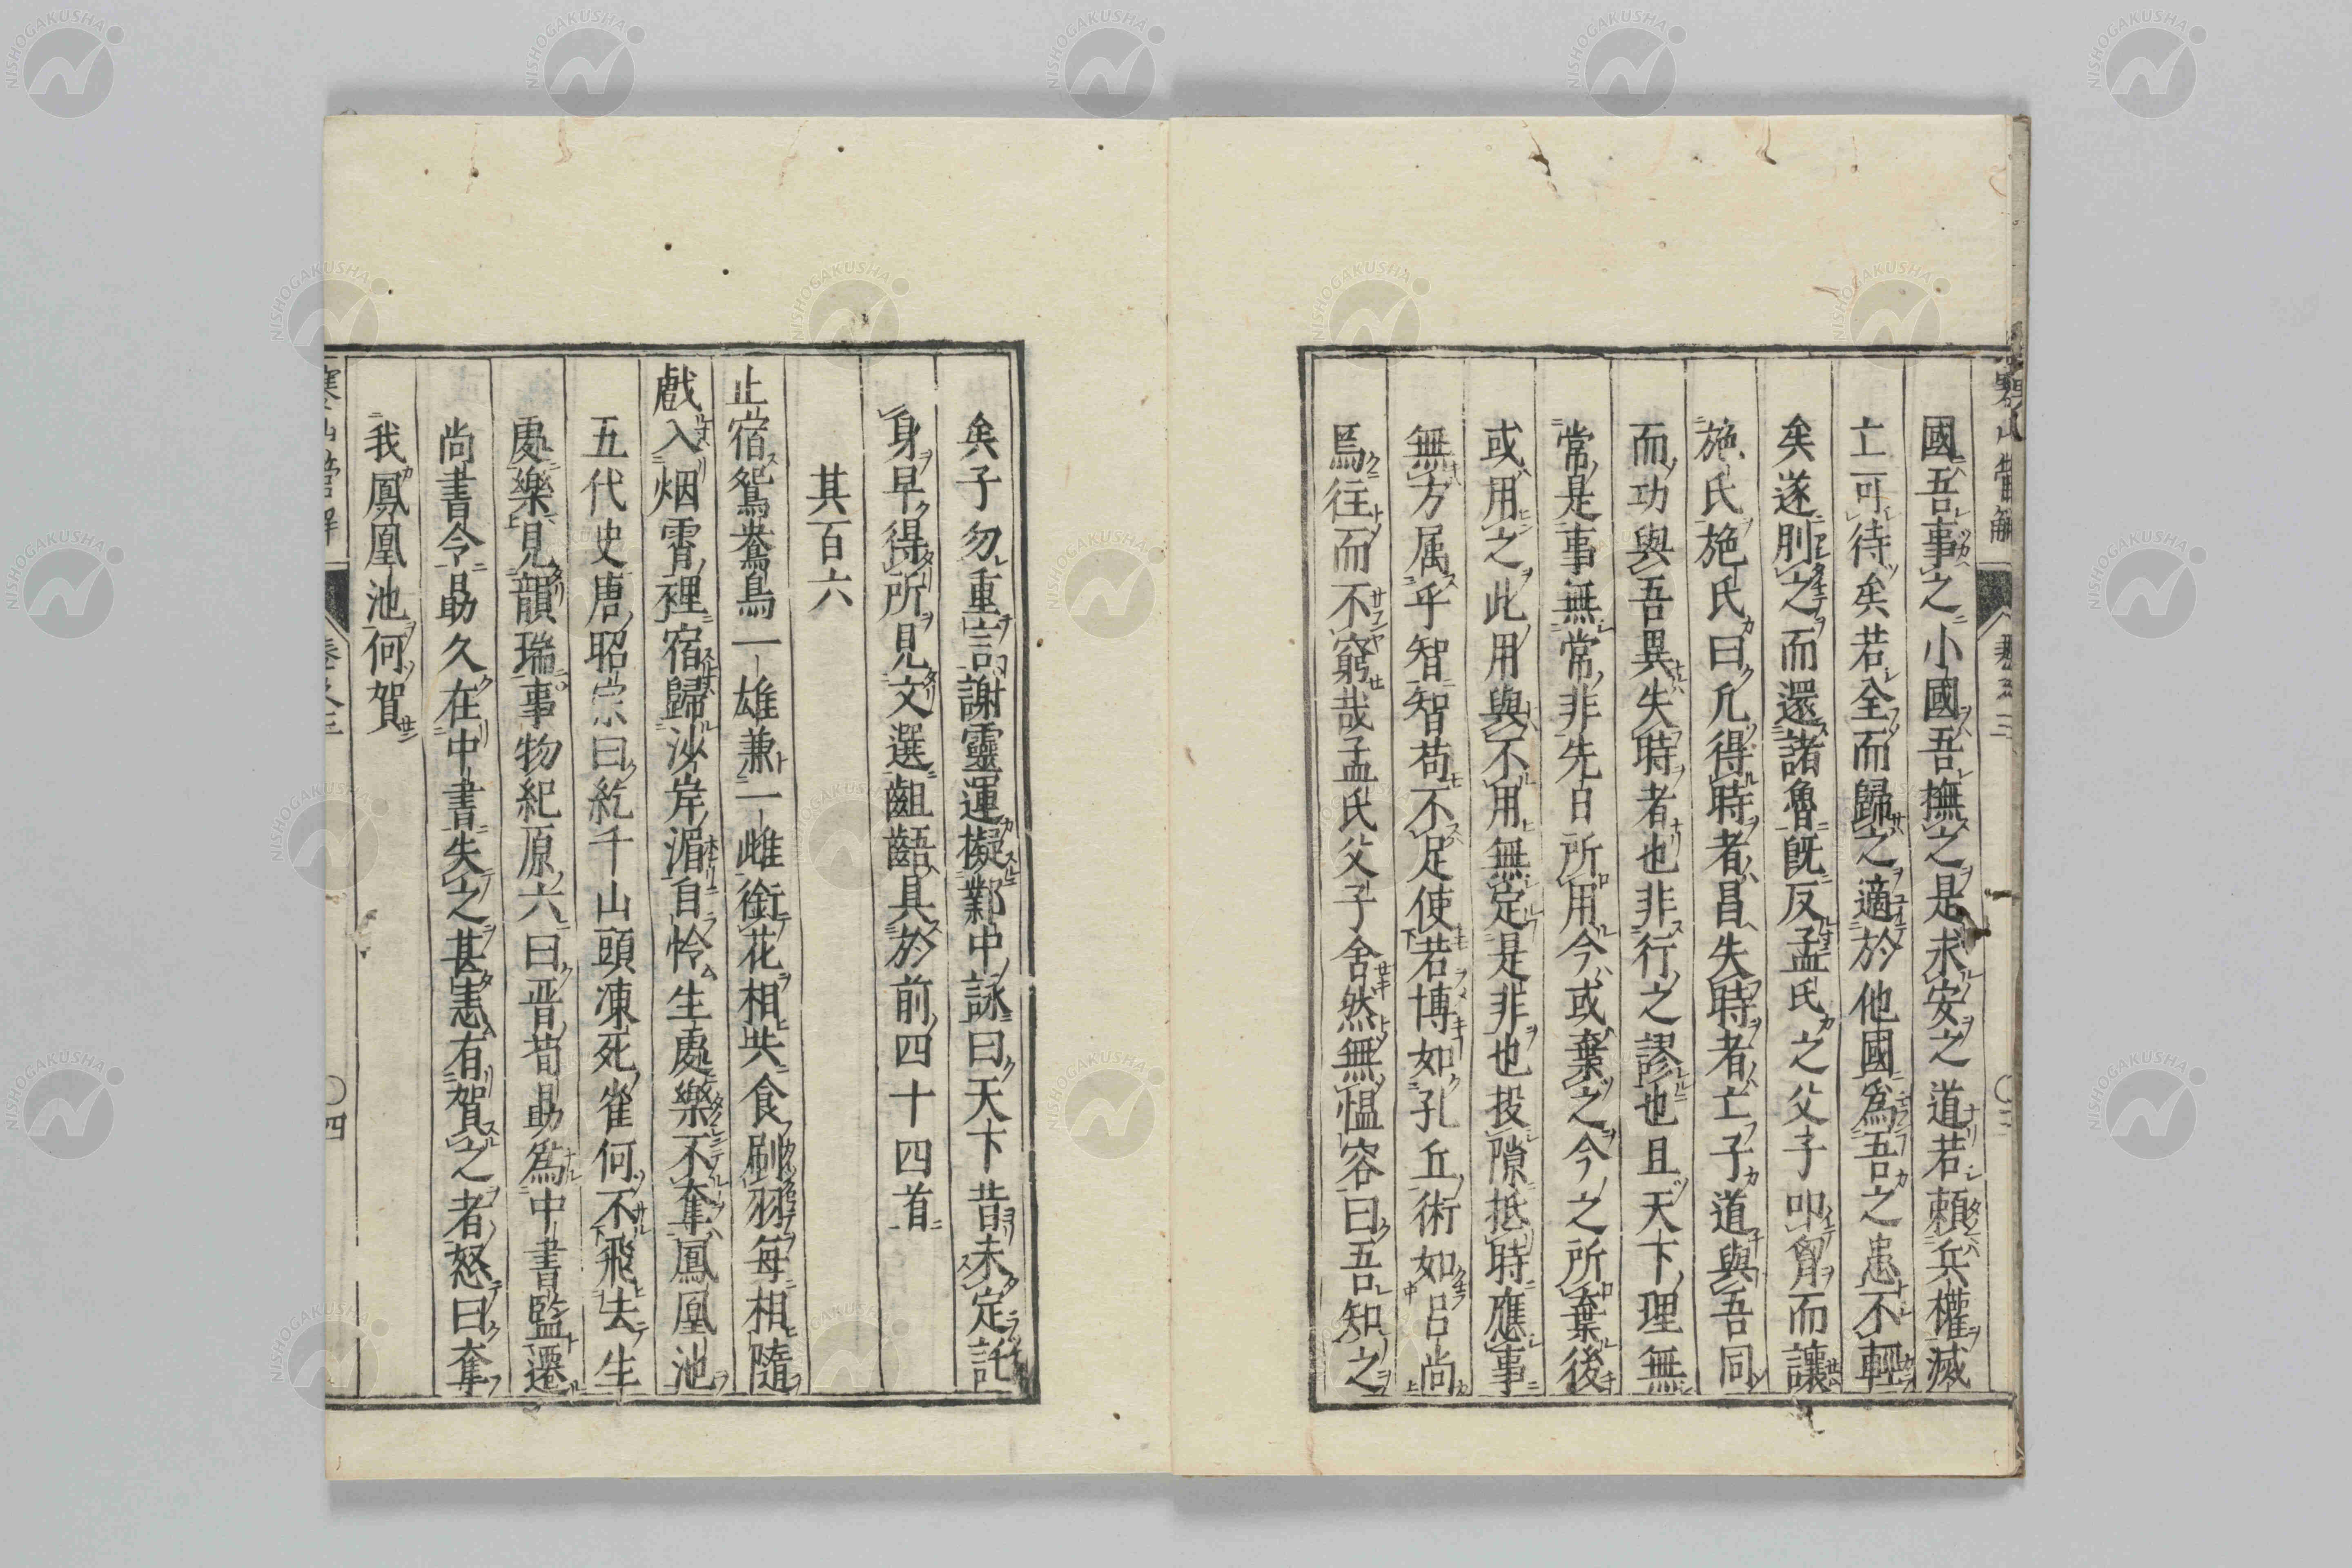 寒山管解 卷之三
國吾事之小國吾撫之是求安之道若頼兵權滅
亡可待矣若全而歸之適於他國爲吾之患不輕
矣遂刖之而還諸魯既反孟氏之父子叩胷而讓
施氏施氏曰凡得時者昌失時者亡子道與吾同
而功與吾異失時者也非行之謬也且天下理無
常是事無常非先日所用今或棄之今之所棄後
或用之此用與不用無定是非也投隙抵時應事
無方属乎智智苟不足使若博如孔丘術如呂尚
焉往而不窮哉孟氏父子舍然無愠容曰吾知之
矣子勿重言謝靈運擬鄴中詠曰天下昔未定託
身早得所見文選齟齬具於前四十四首
其百六
止宿鴛鴦鳥一雄兼一雌銜花相共食刷羽每相隨
戲入烟霄裡宿歸沙岸湄自怜生處樂不奪鳳凰池
五代史唐昭宗曰紇千山頭凍死雀何不飛去生
處樂見韻瑞事物紀原六曰晋荀勗爲中書監遷
尚書令勗久在中書失之甚恚有賀之者怒曰奪
我鳳凰池何賀
寒山管解 卷之三 〇四